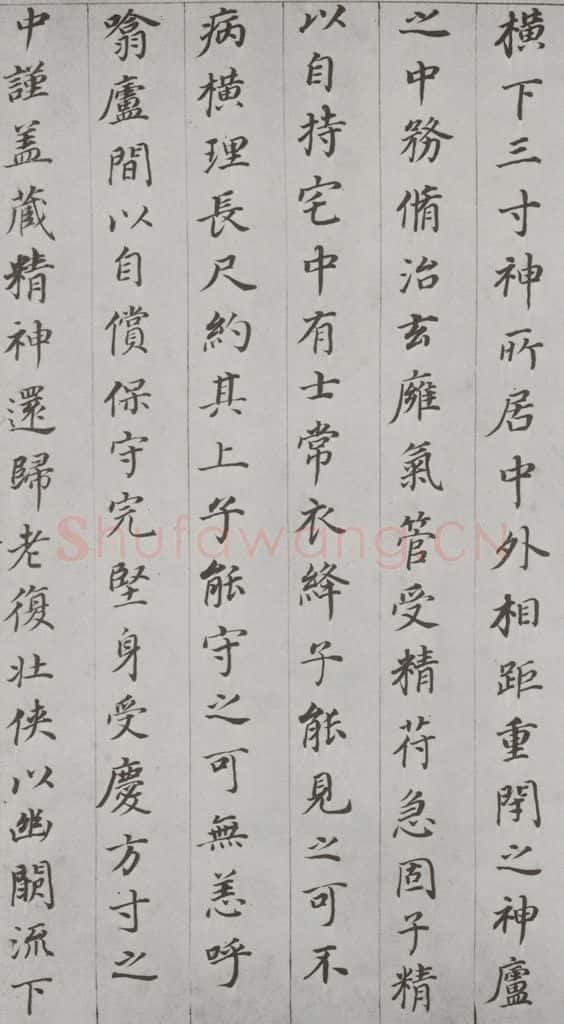 橫下三寸神所居中外相距重閇之神廬
之中務脩治玄廱氣管受精苻急固子精
以自持宅中有士常衣絳子能見之可不
病橫理長尺約其上子能守之可無恙呼
噏廬間以自償保守完堅身受慶方寸之
中謹盖藏精神還歸老復壯俠以幽闕流下
Shufawang.CN